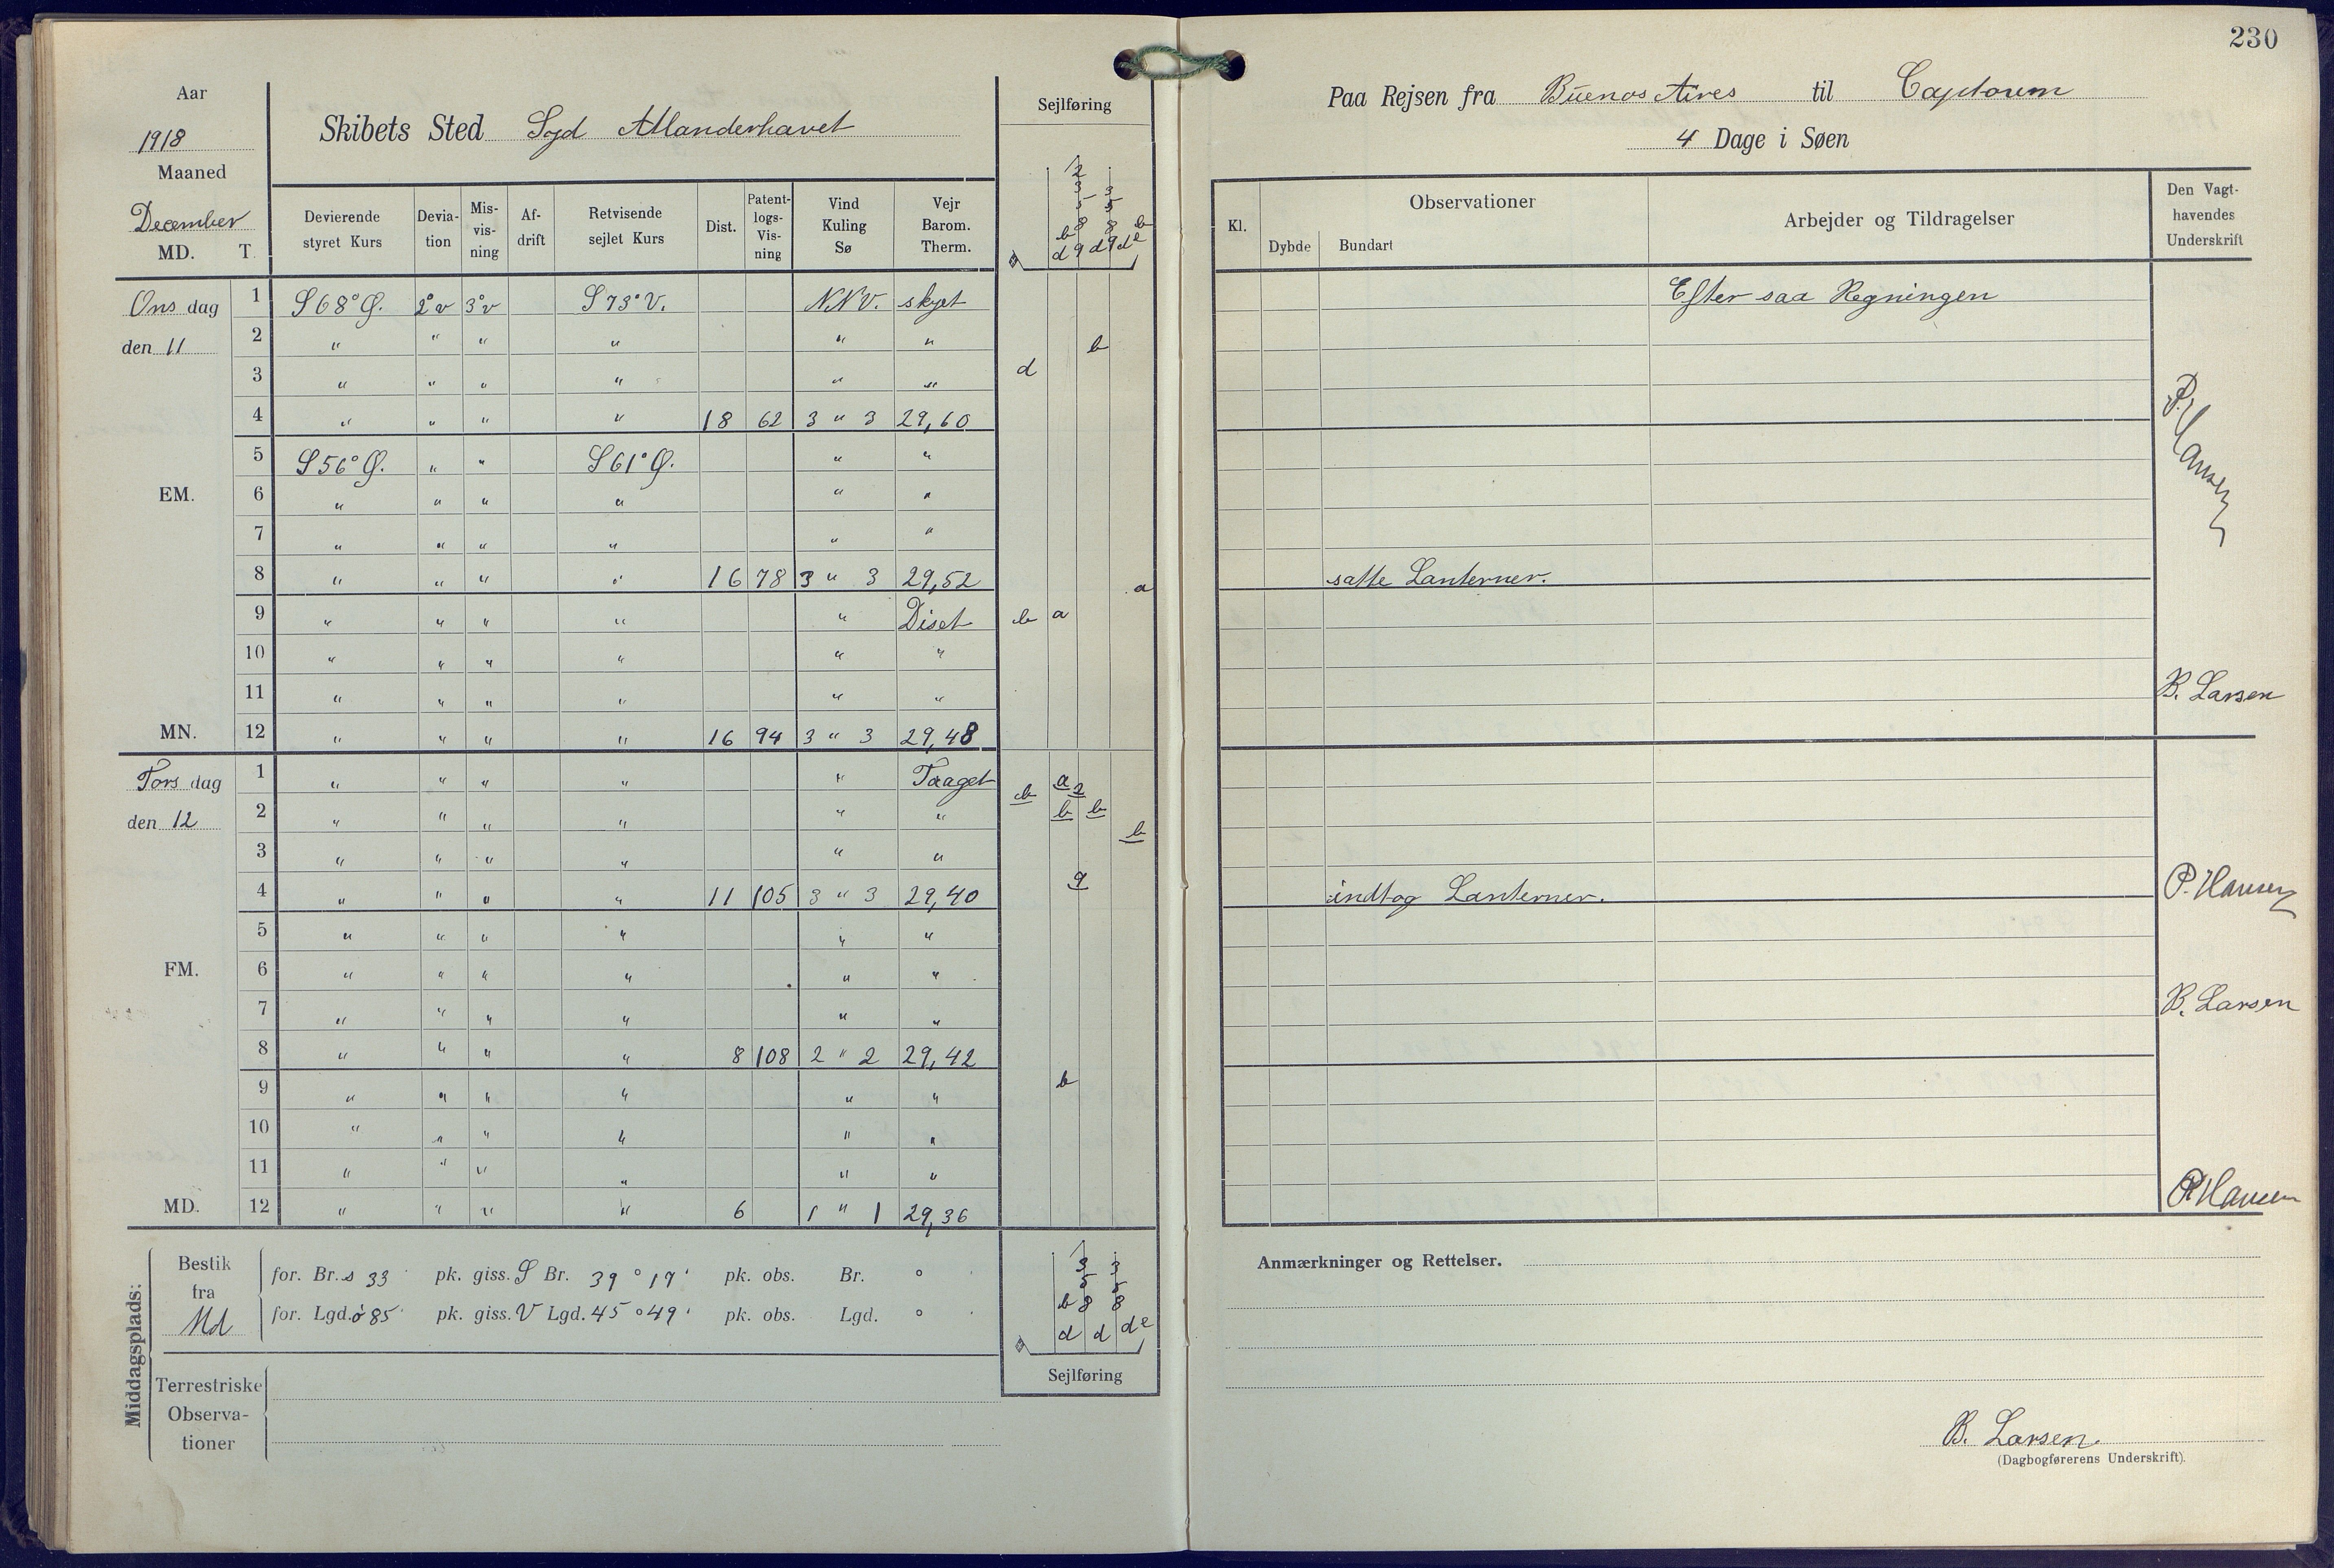 230
Aar
1918
Maaned
December
MD. T.
Skibets Sted Syd Atlanderhavet
Sejlføring
Paa Rejsen fra Buenos Aires til Captoum
4 Dage i Søen
Devierende styret Kurs | Devia-tion | Mis-vis-ning | Af-drift | Retvisende sejlet Kurs | Dist. | Patent-logs-Vis-ning | Vind Kuling Sø | Vejr Barom. Therm.
Kl. | Observationer | Dybde | Bundart | Arbejder og Tildragelser | Den Vagt-havendes Underskrift
Ons dag 1 S 68° Ø. 2° v 3° v S 73° V. NNV. skyet Efter saa Regningen
den 11 2 " " " " " " b
3 " " " " " " d
4 " " " " 18 62 3 " 3 29,60 P. Hansen
5 S 56° Ø. " " S 61° Ø. " "
EM. 6 " " " " " "
7 " " " " " "
8 " " " " 16 78 3 " 3 29,52 a satte Lanterner.
9 " " " " " Diset b a
10 " " " " " "
11 " " " " " " B. Larsen
MN. 12 " " " " 16 94 3 " 3 29,48
Tors dag 1 " " " " " Taaget b a 2
den 12 2 " " " " " " b b b
3 " " " " " "
4 " " " " 11 105 3 " 3 29,40 9 indtog Lanterner. P. Hansen
5 " " " " " "
FM. 6 " " " " " "
7 " " " " " " B. Larsen
8 " " " " 8 108 2 " 2 29,42
9 " " " " " " b
10 " " " " " "
11 " " " " " "
MD. 12 " " " " 6 1 " 1 29,36 P Hansen
Middagsplads:
Bestik fra Md
for. Br. s 33' pk. giss. S Br. 39 ° 17' pk. obs. Br. °
for. Lgd. ø 85' pk. giss. V Lgd. 45 ° 49' pk. obs. Lgd. °
Sejlføring
Terrestriske
Observa-
tioner
Anmærkninger og Rettelser.
B. Larsen.
(Dagbogførerens Underskrift).